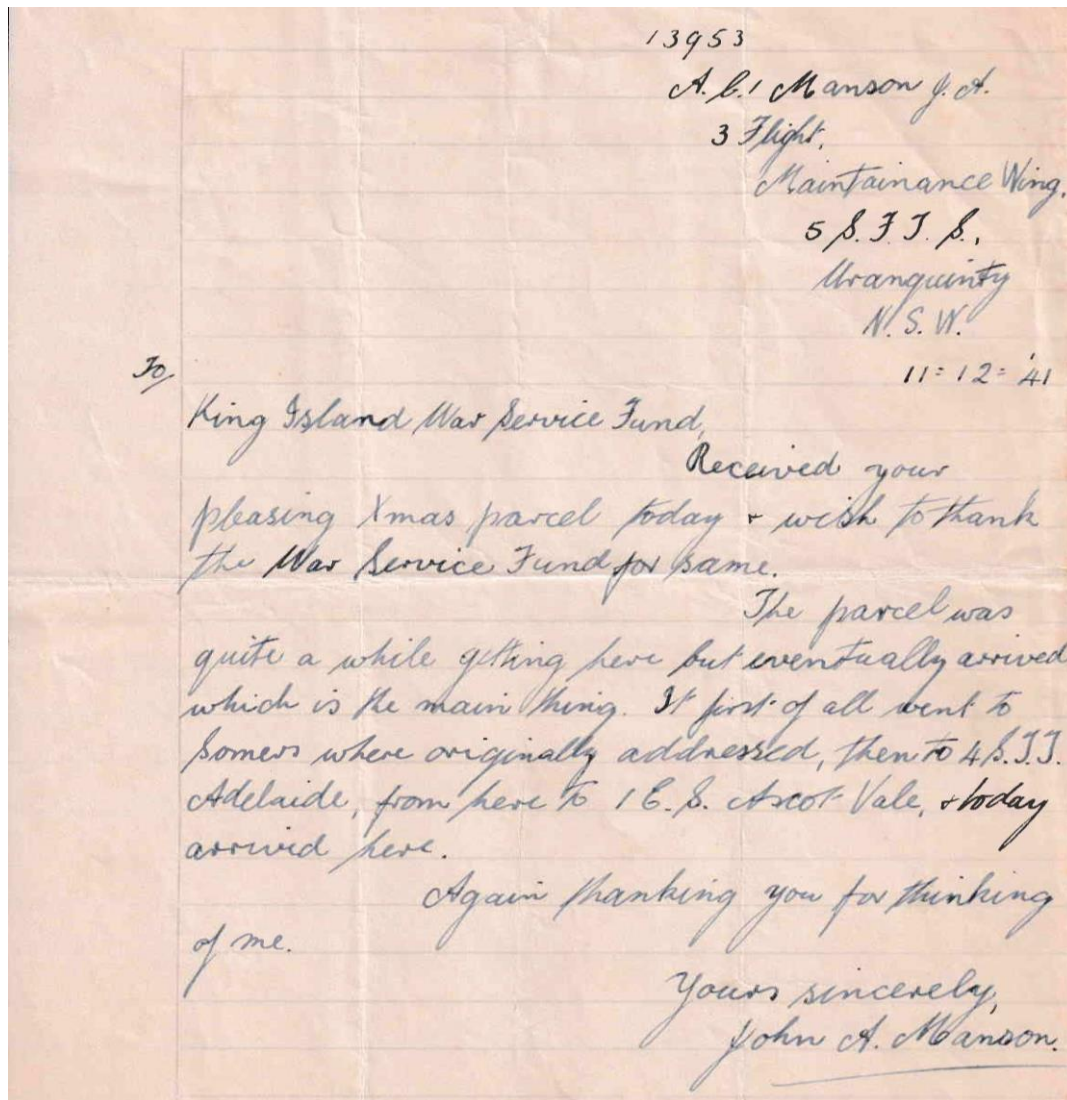 13953
A.C.1 Manson J. A.
3 Flight,
Maintainance Wing.
5 S. F. T. S.,
Uranquinty
N. S. W.
11=12='41
To/
King Island War Service Fund,
Received your
pleasing Xmas parcel today + wish to thank
the War Service Fund for same.
The parcel was
quite a while getting here but eventually arrived
which is the main thing. It first of all went to
Somers where originally addressed, then to 4 S.T.T.
Adelaide, from here to 1 E. S. Ascot Vale, + today
arrived here.
Again thanking you for thinking
of me.
Yours sincerely,
John A. Manson.